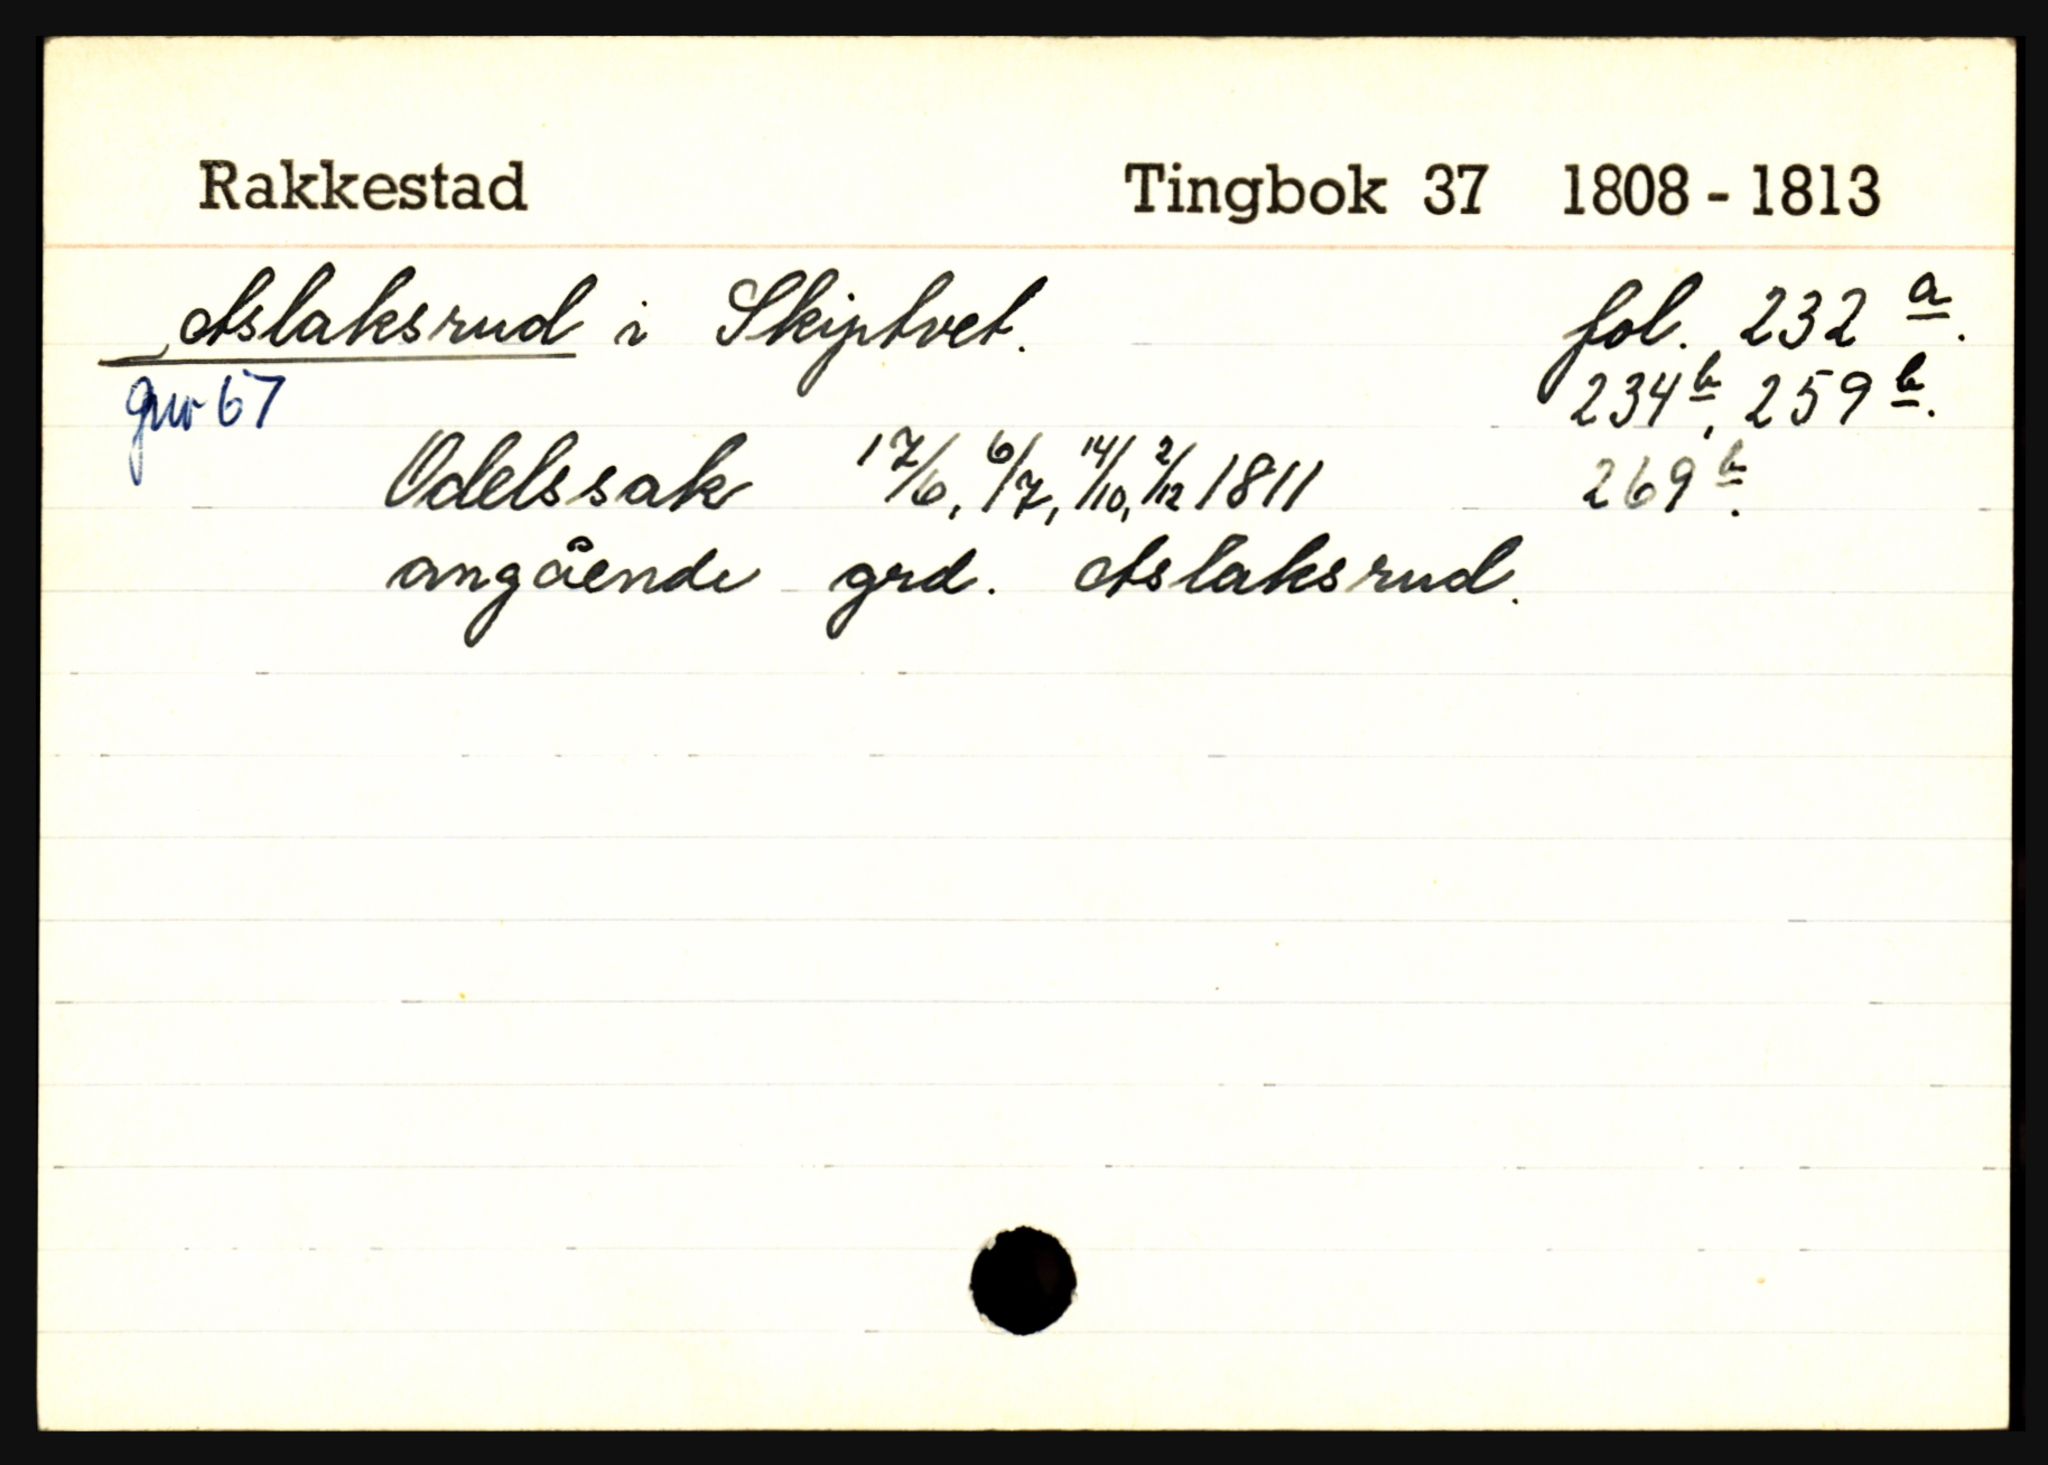 Rakkestad Tingbok 37 1808 - 1813
Aslaksrud i Skiptvet. fol. 232 a.
gnr 67 234 b, 259 b.
Odelssak 17/6, 6/7, 14/10, 2/12 1811 269 b.
angående grd. Aslaksrud.